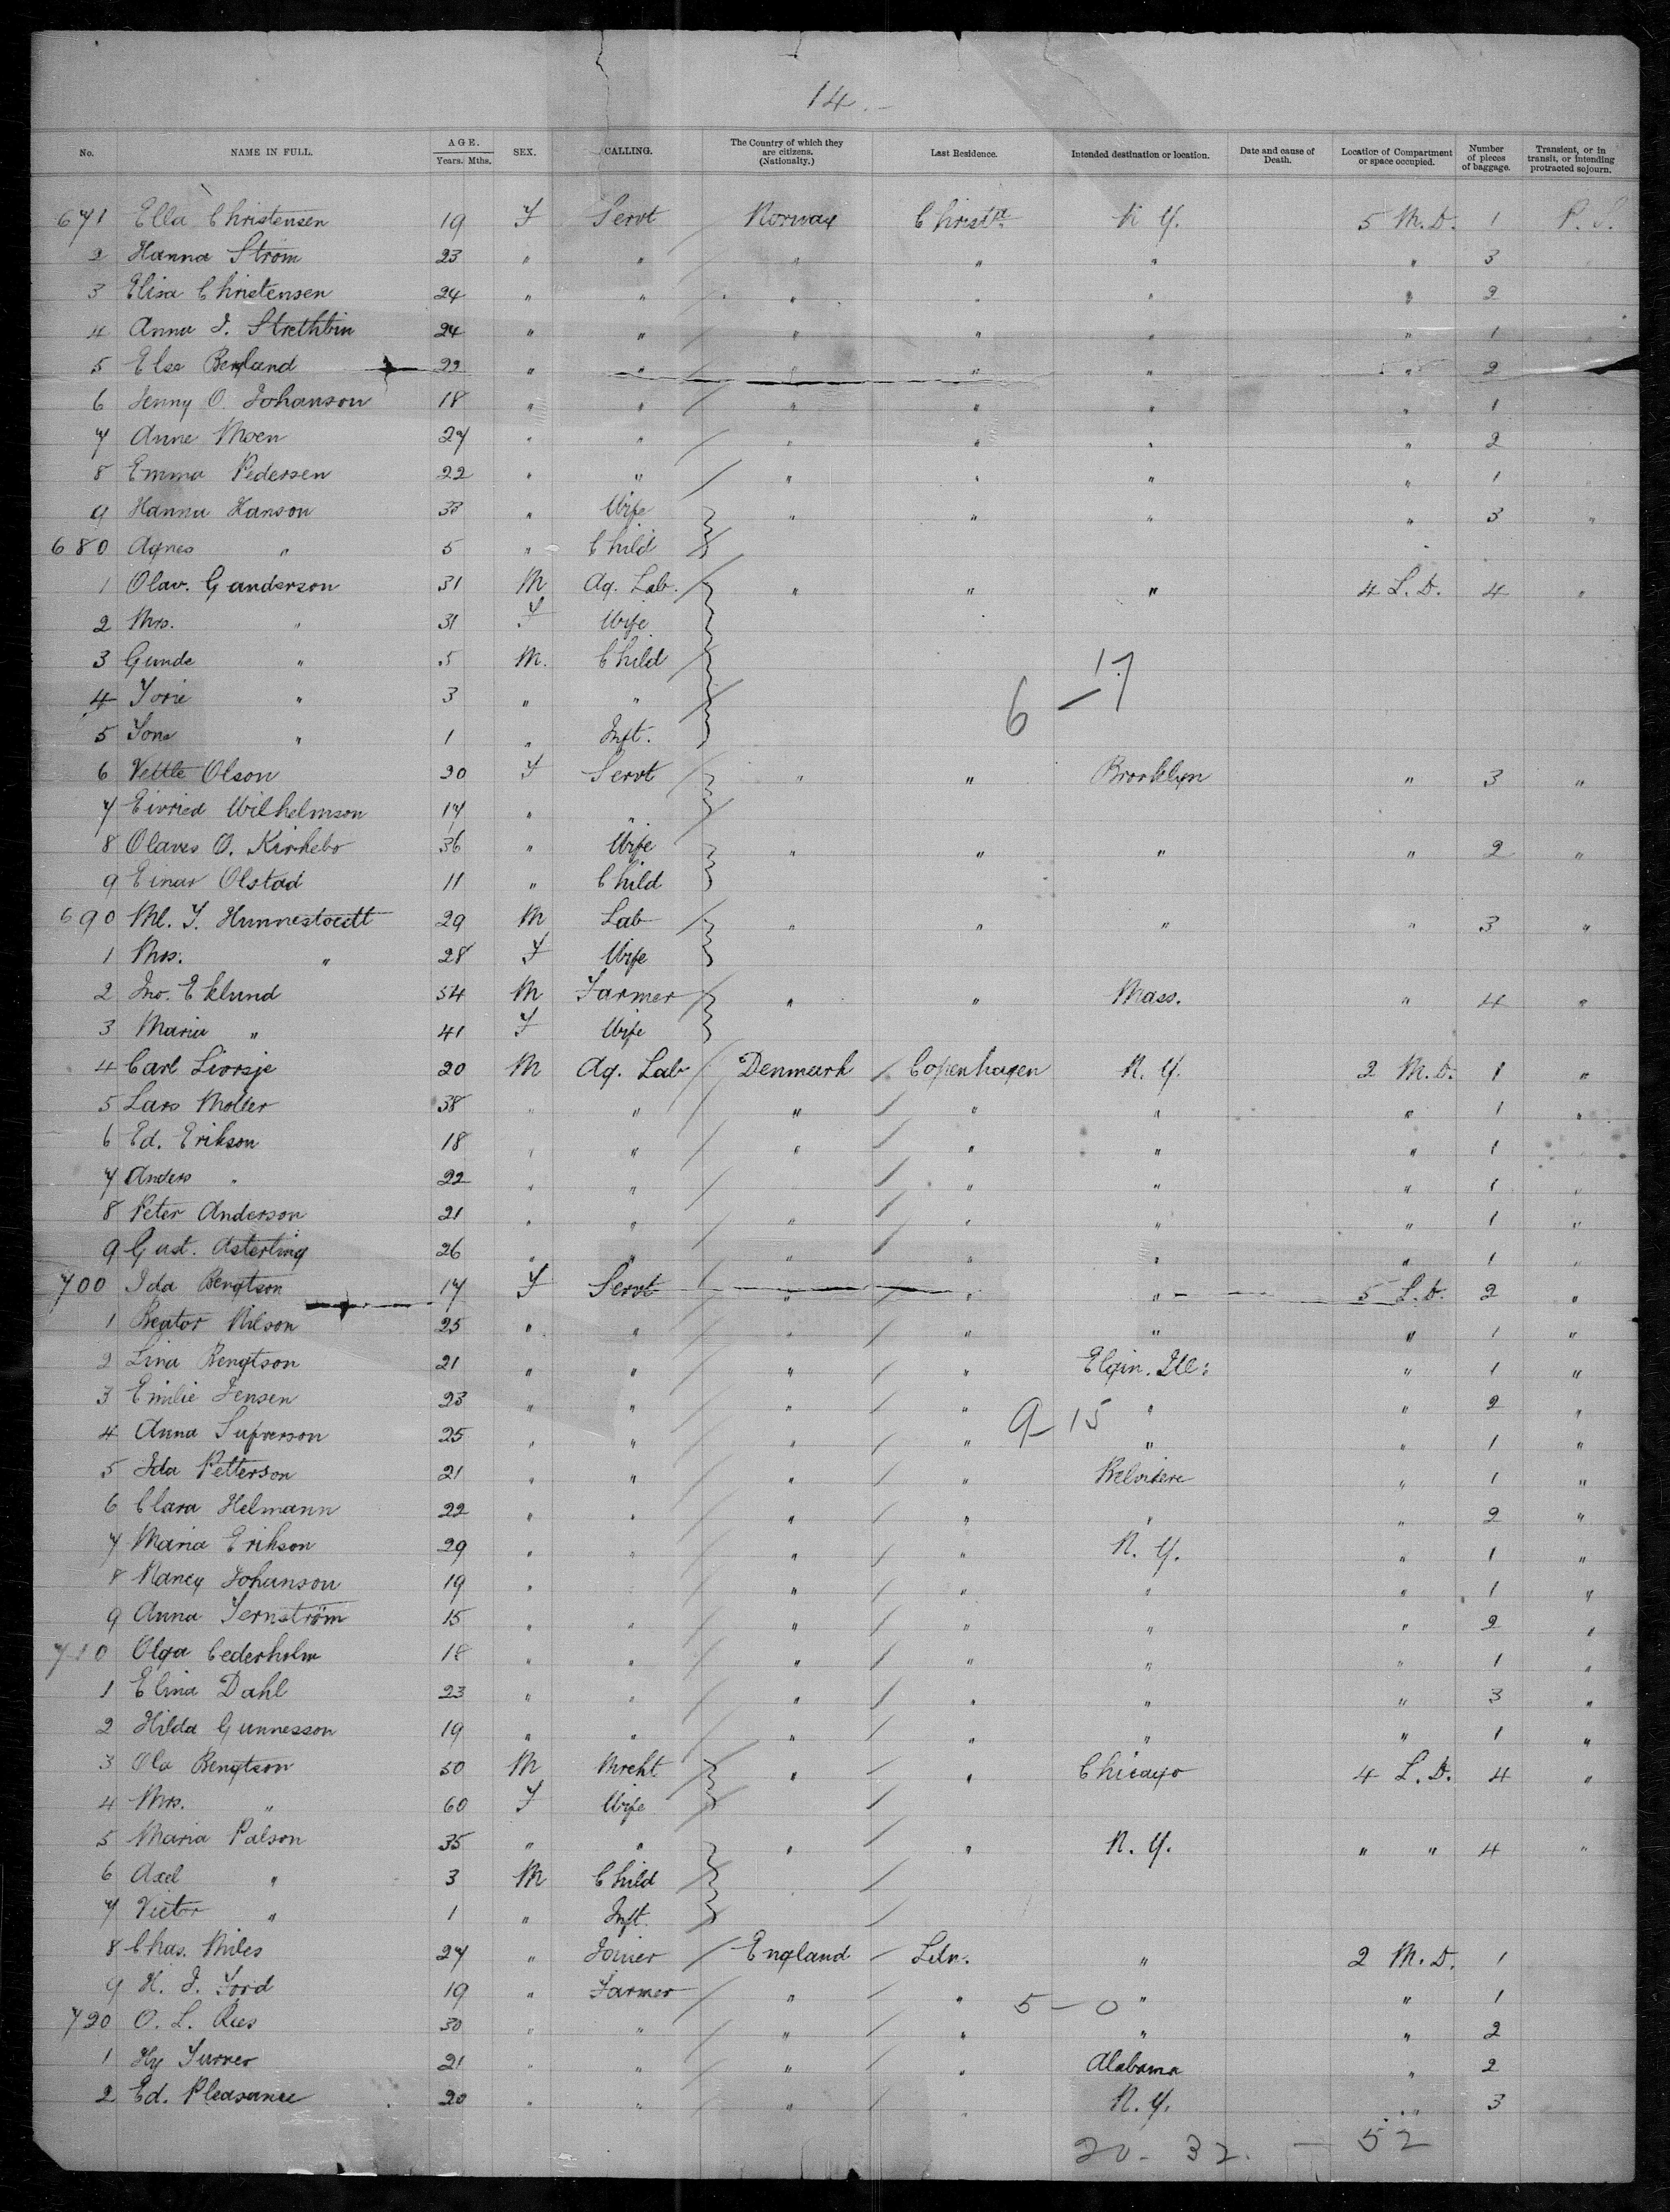 14.-
No. NAME IN FULL. AGE. Years. Mths. SEX. CALLING. The Country of which they are citizens. (Nationalty.) Last Residence. Intended destination or location. Date and cause of Death. Location of Compartment or space occupied. Number of pieces of baggage. Transient, or in transit, or intending protracted sojourn.
671 Ella Christensen 19 F Servt Norway Christa N Y. 5 M.D. 1 P. S.
2 Hanna Ström 23 " " " " " " 3
3 Elisa Christensen 24 " " " " " " 2
4 Anna J. 24 " " " " " " 1
5 Else Berland 22 " " " " " " 2
6 Jenny O. Johanson 18 " " " " " " 1
7 Anne Moen 27 " " " " " " 2
8 Emma Pedersen 22 " " " " " " 1
9 Hanna Hanson 33 " Wife " " " " 3 "
680 Agnes " 5 " Child
1 Olav. Gunderson 31 M Ag. Lab. " " " 4 L. D. 4 "
2 Mrs. " 31 F Wife
3 Gunde " 5 M. Child
4 " 3 " "
6 - 17
5 " 1 " Inft.
6 Vettle Olson 20 F Servt " " Brooklyn " 3 "
7 Wilhelmson 17 " "
8 Olaves O. Kirkebo 36 " Wife " " " " 2 "
9 Einar Olstad 11 " Child
690 29 M Lab " " " " 3 "
1 Mrs. " 28 F Wife
2 Jno. Eklund 54 M Farmer " " Mass. " 4 "
3 Maria " 41 F Wife
4 Carl 20 M Ag. Lab Denmark Copenhagen N. Y. 2 M.D. 1 "
5 Lars Moller 38 " " " " " " 1 "
6 Ed. Erikson 18 " " " " " " 1 "
7 Anders " 22 " " " " " 1 "
8 Peter Anderson 21 " " " " " " 1 "
9 Gust. Asterling 26 " " " " " " 1 "
700 Ida Bengtson 17 F Servt " " " 5 L.D. 2 "
1 Beator Nilson 25 " " " " " " 1 "
2 Lina Bengtson 21 " " " " Elgin. Ill: " 1 "
3 Emilie Jensen 23 " " " " " " 2 "
9 - 15
4 Anna 25 " " " " " " 1 "
5 Ida Petterson 21 " " " " Belvidere " 1 "
6 Clara Helmann 22 " " " " " " 2 "
7 Maria Erikson 29 " " " " N. Y. " 1 "
8 Nancy Johanson 19 " " " " " " 1 "
9 Anna Jernström 15 " " " " " " 2 "
710 Olga Cederholm 18 " " " " " " 1 "
1 Elina Dahl 23 " " " " " " 3 "
2 Hilda Gunnesson 19 " " " " " " 1 "
3 Ola Bengtson 50 M Mrcht " " Chicago 4 L.D. 4 "
4 Mrs. " 60 F Wife
5 Maria Palson 35 " " " " N. Y. " " 4 "
6 Axel " 3 M Child
7 Victor " 1 " Inft.
8 Chas. Miles 27 " Joiner England Ldn. " 2 M.D. 1
9 H. J. Ford 19 " Farmer " " " " 1
5 - 0
720 O. L. Rees 30 " " " " " " 2
1 Hy Turner 21 " " " " Alabama " 2
2 Ed. Pleasance 20 " " " " N. Y. " 3
20 - 32. - 52